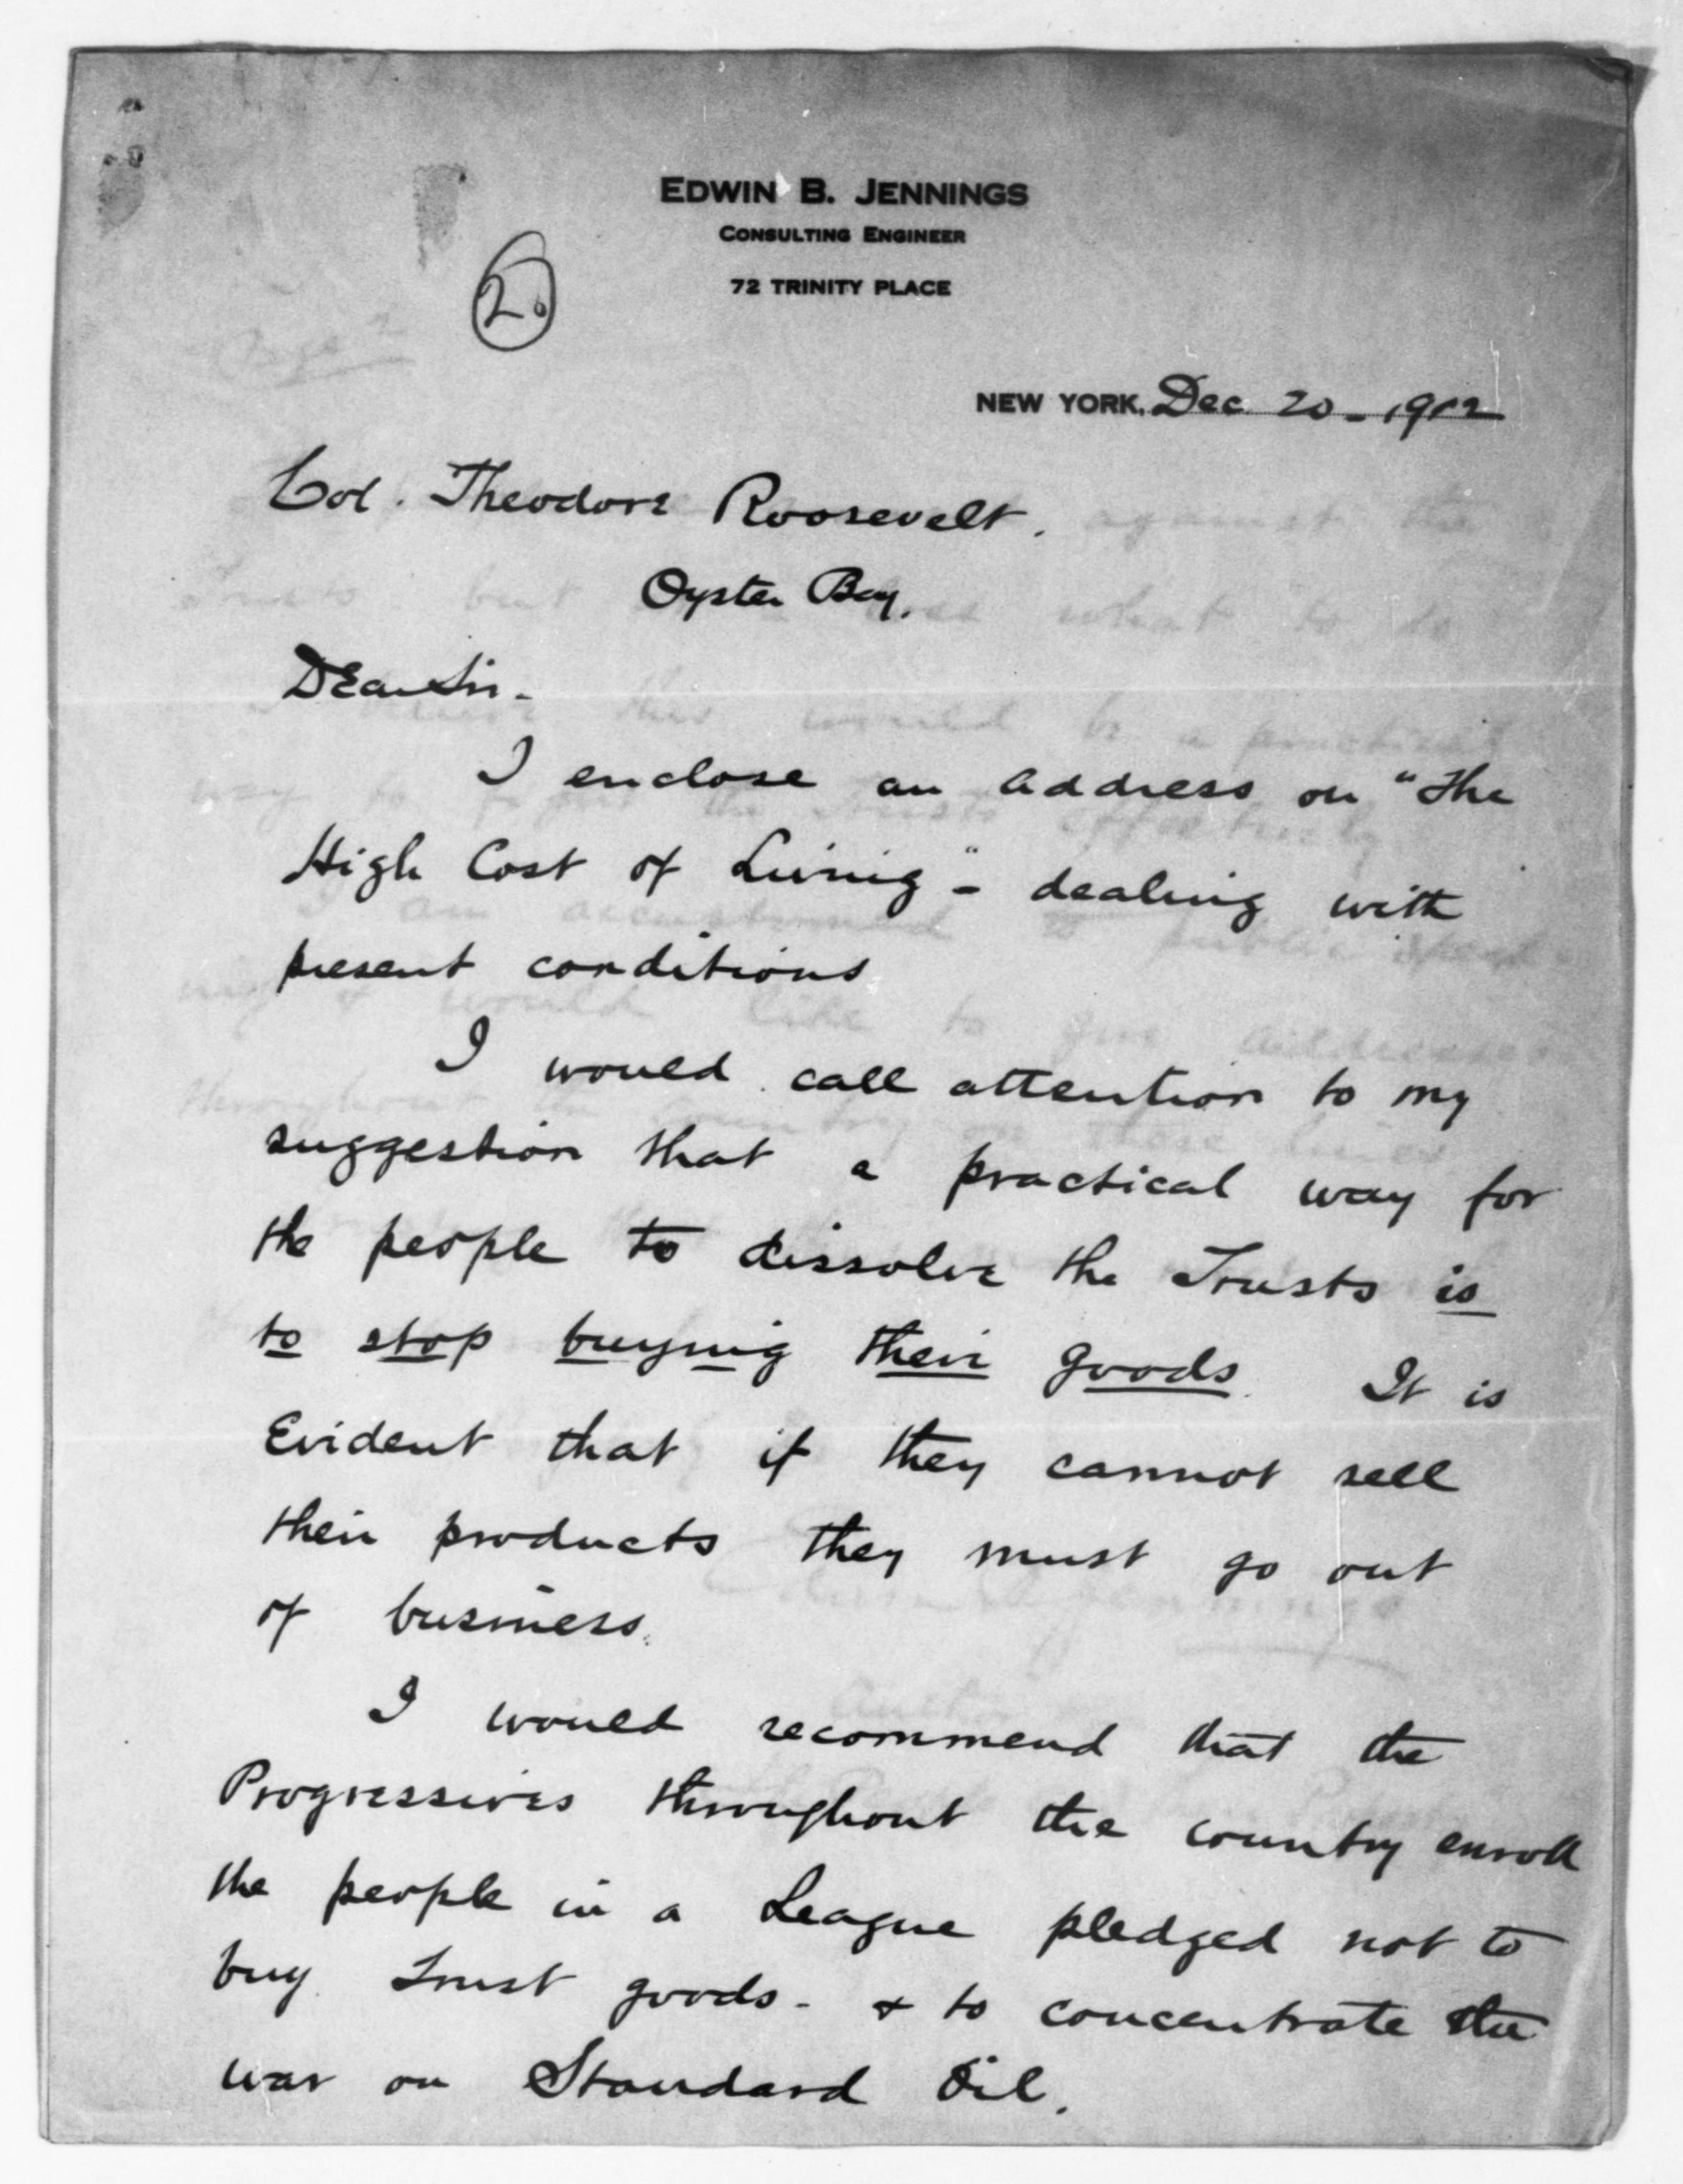 EDWIN B. JENNINGS
CONSULTING ENGINEER
72 TRINITY PLACE
2.
NEW YORK, Dec 20 - 1912
Col. Theodore Roosevelt.
Oyster Bay.
Dear Sir -
I enclose an address on "The
High Cost of Living" - dealing with
present conditions
I would call attention to my
suggestion that a practical way for
the people to dissolve the Trusts is
to stop buying their goods. It is
Evident that if they cannot sell
their products they must go out
of business.
I would recommend that the
Progressives throughout the country enroll
the people in a League pledged not to
buy Trust goods - & to concentrate the
war on Standard Oil.